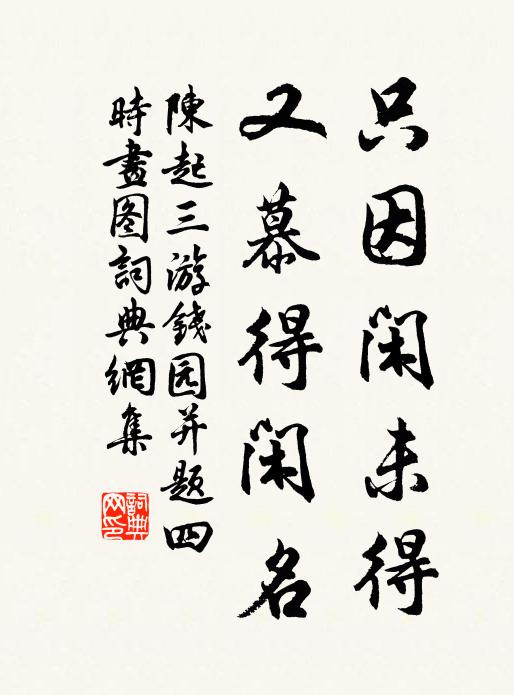 只因闲未得
又慕得闲名
陳起三游錢园并题四
時畫图詞典網集
詞典网印